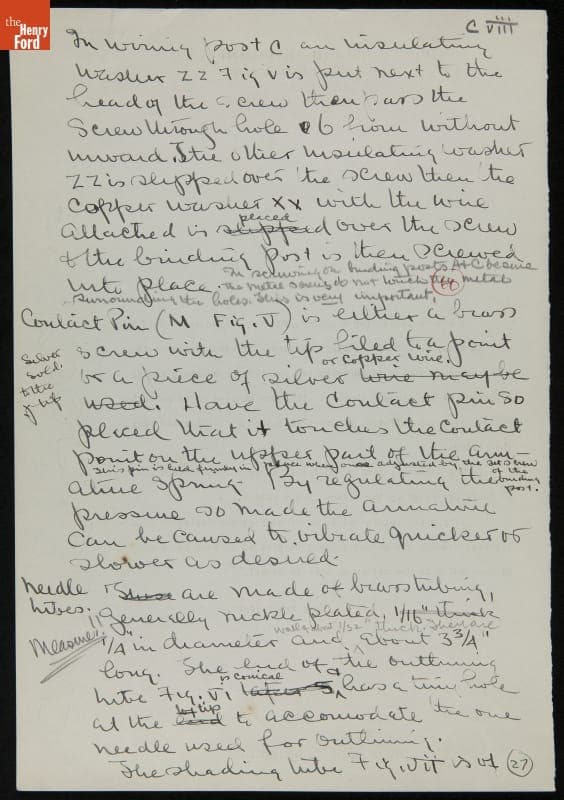 the
Henry
Ford
C VIII
In wiring post C an insulating
washer ZZ Fig V is put next to the
head of the screw then pass the
screw through hole 6 from without
inward. The other insulating washer
ZZ is slipped over the screw then the
copper washer XX with the wire
placed
attached is slipped over the screw
& the binding post is then screwed
into place.
In screwing on binding posts A & C be sure
the metal screws do not touch the metal
surrounding the holes. This is very important.
Contact Pin (M Fig. V) is either a brass
screw with the tip filed to a point
or copper wire.
or a piece of silver wire may be
silver
sold.
to the
tip
used. Have the contact pin so
placed that it touches the contact
point on the upper part of the arm-
This pin is held firmly in place when once adjusted by the set screw
of the
binding
post.
ature spring. By regulating the
pressure so made the armature
can be caused to vibrate quicker or
slower as desired.
Needle
tubes.
are made of brass tubing,
generally nickle plated, 1/16" thick
Measure!!
walls about 1/32" thick. They are
1/4" in diameter and about 3 3/4"
long. The end of the outlining
is conical &
tube Fig. VI has a tiny hole
tip
at the end to accomodate the one
needle used for outlining.
The shading tube Fig. VII is of
27